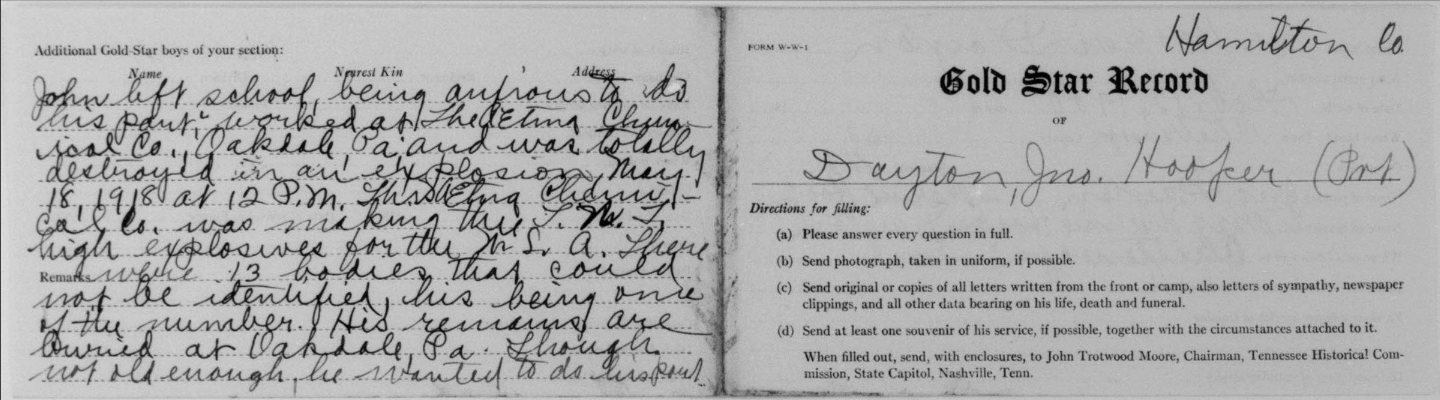 Additional Gold-Star boys of your section:
Name Nearest Kin Address
John left school, being anxious to do
his part, worked at The Etna Chem-
ical Co., Oakdale, Pa and was totally
destroyed in an explosion, May
18, 1918 at 12 P.M. This Etna Chemi-
cal Co. was making the T. N. T.
high explosives for the U. S. A. There
Remarks were 13 bodies that could
not be identified, his being one
of the number. His remains are
buried at Oakdale, Pa. Though
not old enough, he wanted to do his part
FORM W-W-1
Hamilton Co
Gold Star Record
OF
Dayton, Jno. Hooper (Pvt)
Directions for filling:
(a) Please answer every question in full.
(b) Send photograph, taken in uniform, if possible.
(c) Send original or copies of all letters written from the front or camp, also letters of sympathy, newspaper
clippings, and all other data bearing on his life, death and funeral.
(d) Send at least one souvenir of his service, if possible, together with the circumstances attached to it.
When filled out, send, with enclosures, to John Trotwood Moore, Chairman, Tennessee Historical Com-
mission, State Capitol, Nashville, Tenn.